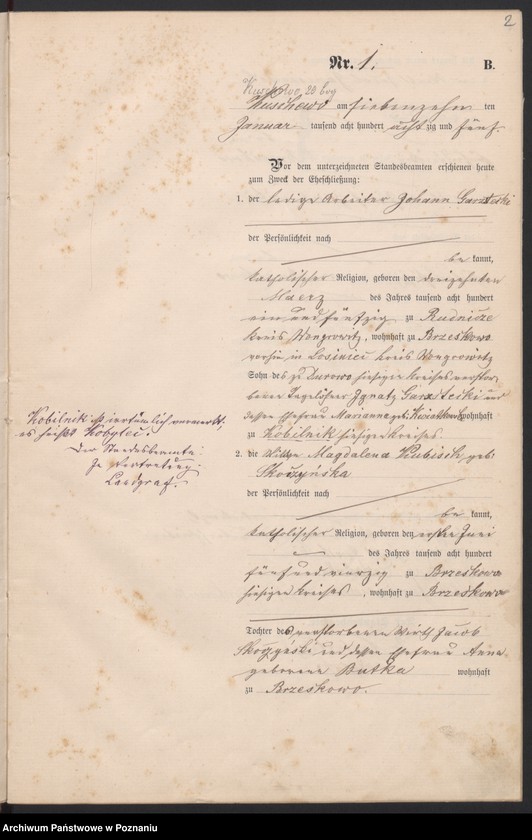 2
Nr. 1. B.
Kuschewo am siebenzehn ten
Januar tausend acht hundert achtzig und fünf.
Vor dem unterzeichneten Standesbeamten erschienen heute
zum Zweck der Eheschließung:
1. der ledige Arbeiter Johann
der Persönlichkeit nach
be kannt,
katholischer Religion, geboren den dreizehnten
Maerz des Jahres tausend acht hundert
ein und fünfzig zu Rudnicze
Kreis Wongrowitz, wohnhaft zu Brzeskowo
vorhin in Kreis Wongrowitz
Sohn des zu Durowo hiesigen Kreises verstor-
benen Tagelöhner Ignatz und
dessen Ehefrau Marianna geb. wohnhaft
zu Kobilnik hiesigen Kreises.
2. die Wittwe Magdalena Kubisch geb:
Skoczyńska
der Persönlichkeit nach
be kannt,
katholischer Religion, geboren den ersten Juni
des Jahres tausend acht hundert
fünf und vierzig zu Brzeskowo
hiesigen Kreises, wohnhaft zu Brzeskowo
Tochter des verstorbenen Wirth Jacob
und dessen Ehefrau Anna
geborene Butka wohnhaft
zu Brzeskowo.
Kobilnik ist irrtümlich vermerkt.
es heißt Kobylec.
Der Standesbeamte:
In Vertretung:
Landgraf.
Archiwum Państwowe w Poznaniu